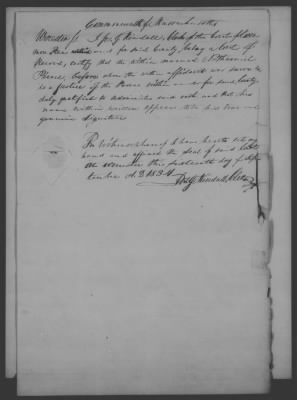 Commonwealth of Massachusetts
Worcester Ss. I Jos. G. Kendall, Clerk of the Court of Com-
mon Pleas within and for said County, being a Court of
Record, certify that the within named Nathaniel
before whom the within affidavit was sworn to
is a justice of the Peace within and for said County
duly qualified to administer said oath and that his
name within written appears to be his true and
genuine signature
In testimony whereof I have hereto set my
hand and affixed the seal of said Court
at Worcester this day of Septem-
ber A.D. 1834.
Jos. G. Kendall, Clerk